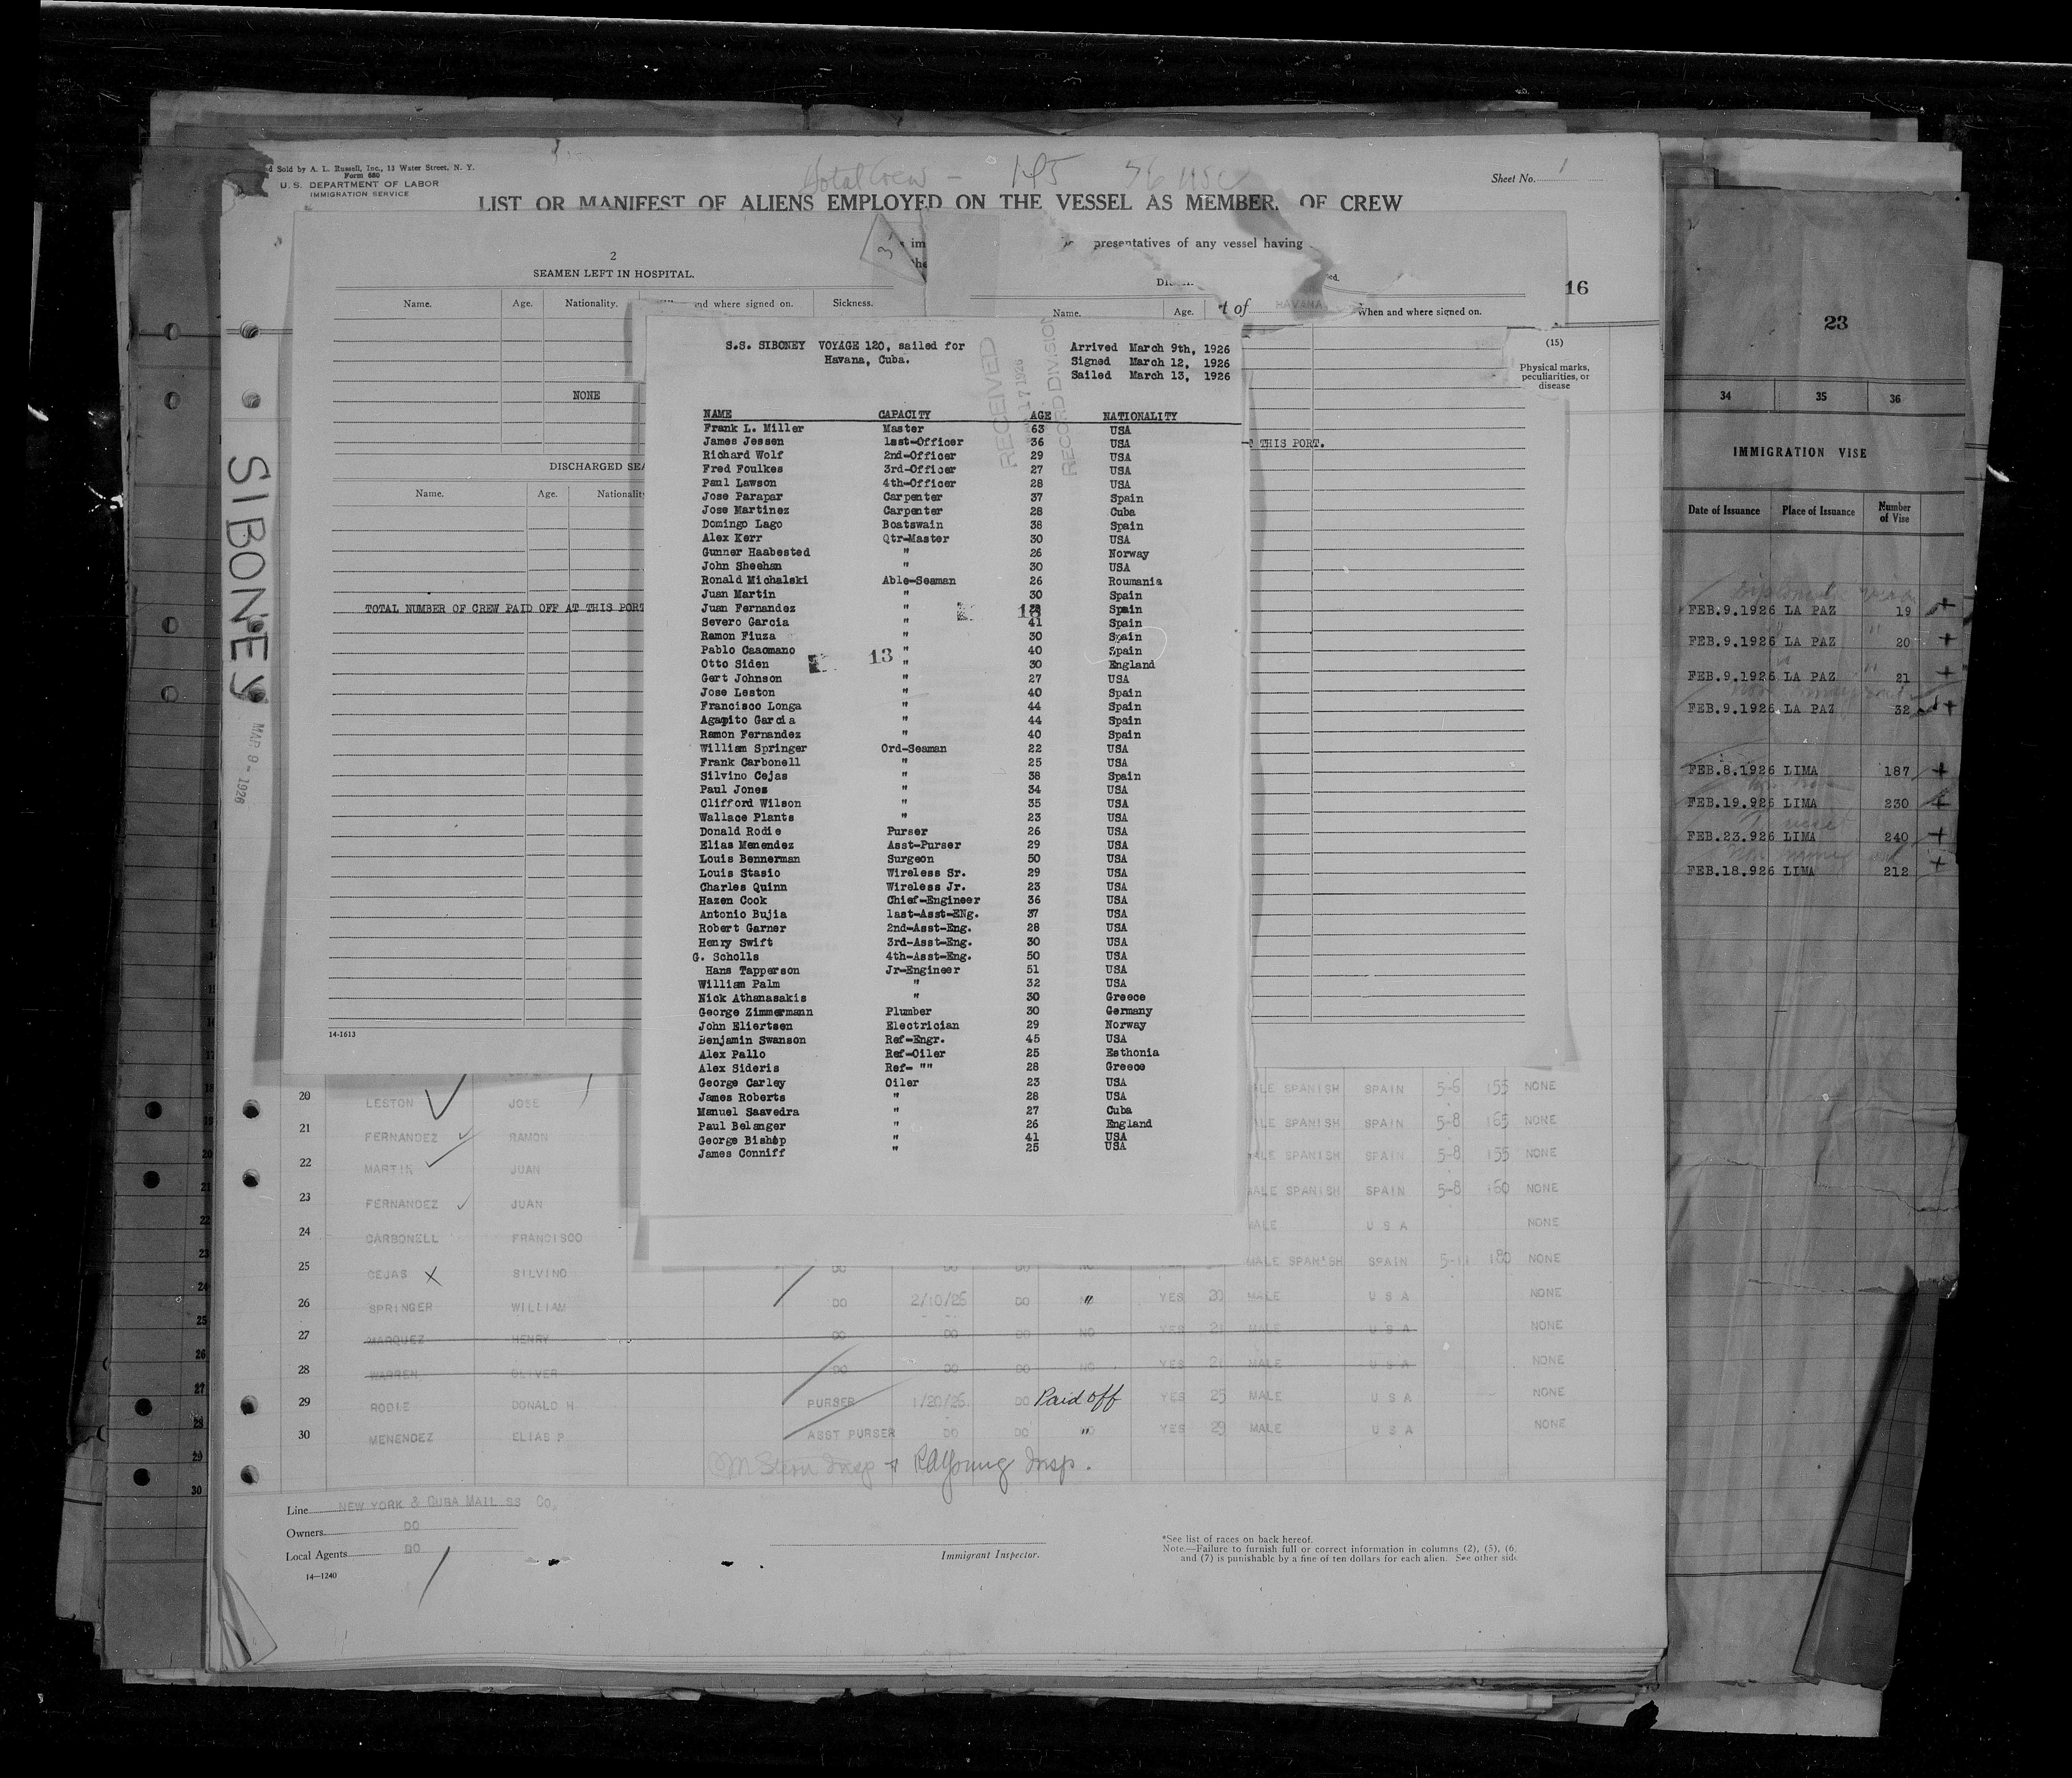 d Sold by A. L. Russell, Inc., 13 Water Street, N. Y.
Form 680
U. S. DEPARTMENT OF LABOR
IMMIGRATION SERVICE
Total Crew - 145 76 USC
Sheet No. 1
LIST OR MANIFEST OF ALIENS EMPLOYED ON THE VESSEL AS MEMBER. OF CREW
presentatives of any vessel having
2
SEAMEN LEFT IN HOSPITAL.
Name. Age. Nationality. nd where signed on. Sickness.
Name. Age. t of HAVANA When and where signed on.
16
NONE
DISCHARGED SEA
Name. Age. Nationalit
TOTAL NUMBER OF CREW PAID OFF AT THIS PORT
THIS PORT.
14-1613
(15)
Physical marks, peculiarities, or disease
SIBONEY
MAR 9 - 1926
S.S. SIBONEY VOYAGE 120, sailed for
Havana, Cuba.
Arrived March 9th, 1926
Signed March 12, 1926
Sailed March 13, 1926
RECEIVED
7 1926
RECORD DIVISION
NAME CAPACITY AGE NATIONALITY
Frank L. Miller Master 63 USA
James Jessen 1sst-Officer 36 USA
Richard Wolf 2nd-Officer 29 USA
Fred Foulkes 3rd-Officer 27 USA
Paul Lawson 4th-Officer 28 USA
Jose Parapar Carpenter 37 Spain
Jose Martinez Carpenter 28 Cuba
Domingo Lago Boatswain 38 Spain
Alex Kerr Qtr-Master 30 USA
Gunner Haabested " 26 Norway
John Sheehan " 30 USA
Ronald Michalski Able-Seaman 26 Roumania
Juan Martin " 30 Spain
Juan Fernandez " 28 Spain
13
Severo Garcia " 41 Spain
Ramon Fiuza " 30 Spain
Pablo Caaomano " 40 Spain
13
Otto Siden " 30 England
Gert Johnson " 27 USA
Jose Leston " 40 Spain
Francisco Longa " 44 Spain
Agapito Garcia " 44 Spain
Ramon Fernandez " 40 Spain
William Springer Ord-Seaman 22 USA
Frank Carbonell " 25 USA
Silvino Cejas " 38 Spain
Paul Jones " 34 USA
Clifford Wilson " 35 USA
Wallace Plants " 23 USA
Donald Rodie Purser 26 USA
Elias Menendez Asst-Purser 29 USA
Louis Bennerman Surgeon 50 USA
Louis Stasio Wireless Sr. 29 USA
Charles Quinn Wireless Jr. 23 USA
Hazen Cook Chief-Engineer 36 USA
Antonio Bujia last-Asst-ENg. 37 USA
Robert Garner 2nd-Asst-Eng. 28 USA
Henry Swift 3rd-Asst-Eng. 30 USA
G. Scholls 4th-Asst-Eng. 50 USA
Hans Tapperson Jr-Engineer 51 USA
William Palm " 32 USA
Nick Athanasakis " 30 Greece
George Zimmermann Plumber 30 Germany
John Eliertsen Electrician 29 Norway
Benjamin Swanson Ref-Engr. 45 USA
Alex Pallo Ref-Oiler 25 Esthonia
Alex Sideris Ref- "" 28 Greece
George Carley Oiler 23 USA
James Roberts " 28 USA
Manuel Saavedra " 27 Cuba
Paul Belanger " 26 England
George Bishop " 41 USA
James Conniff " 25 USA
20 LESTON JOSE LE SPANISH SPAIN 5-6 155 NONE
21 FERNANDEZ RAMON LE SPANISH SPAIN 5-8 165 NONE
22 MARTIN JUAN ALE SPANISH SPAIN 5-8 155 NONE
23 FERNANDEZ JUAN MALE SPANISH SPAIN 5-8 160 NONE
24 CARBONELL FRANCISCO MALE U S A NONE
25 CEJAS X SILVINO DO DO DO NO MALE SPANISH SPAIN 5-11 180 NONE
26 SPRINGER WILLIAM DO 2/10/26 DO " YES 20 MALE U S A NONE
27 MARQUEZ HENRY DO DO DO NO YES 21 MALE U S A NONE
28 WARREN OLIVER DO DO DO NO YES 21 MALE U S A NONE
29 RODIE DONALD H PURSER 1/20/26 DO Paid off YES 25 MALE U S A NONE
30 MENENDEZ ELIAS P ASST PURSER DO DO " YES 29 MALE U S A NONE
Insp + RA Young Insp.
Line NEW YORK & CUBA MAIL SS Co.
Owners DO
Local Agents DO
14-1240
Immigrant Inspector.
*See list of races on back hereof.
Note.—Failure to furnish full or correct information in columns (2), (5), (6,
and (7) is punishable by a fine of ten dollars for each alien. See other side
23
34 35 36
IMMIGRATION VISE
Date of Issuance Place of Issuance Number of Vise
FEB.9.1926 LA PAZ 19 +
FEB.9.1926 LA PAZ " 20 +
FEB.9.1926 LA PAZ " 21 +
FEB.9.1926 LA PAZ 32 +
FEB.8.1926 LIMA 187 +
FEB.19.926 LIMA 230 +
FEB.23.926 LIMA 240 +
FEB.18.926 LIMA 212 +